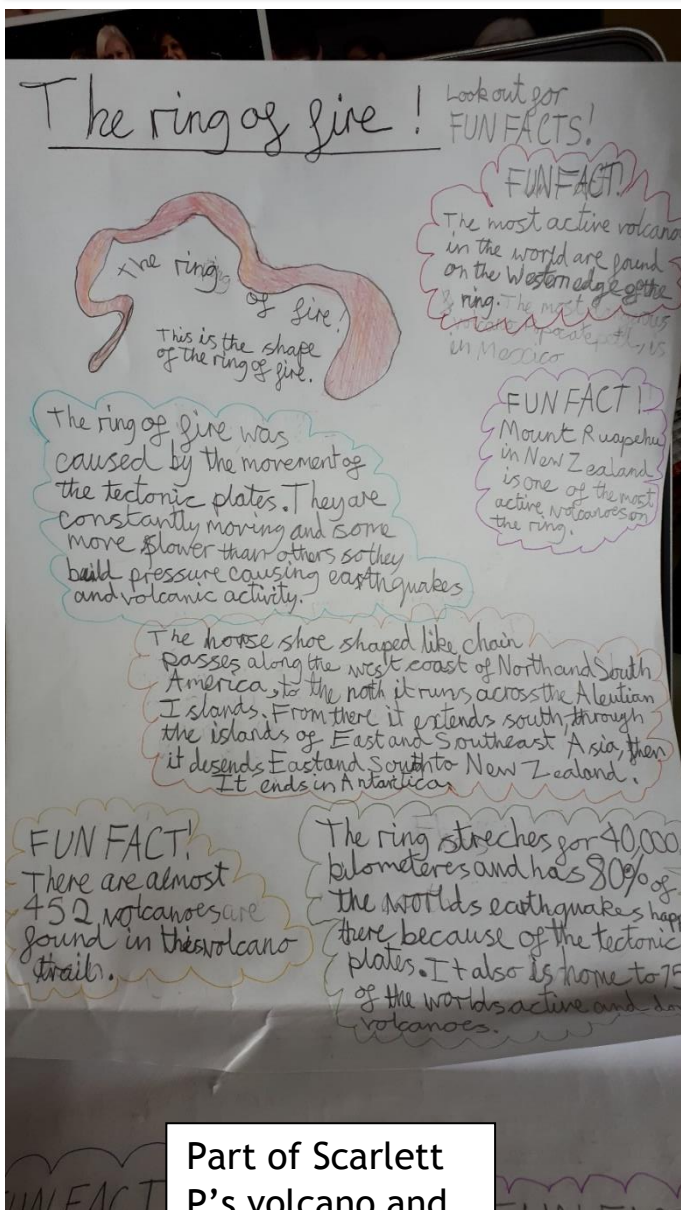 The ring of fire!
Look out for
FUN FACTS!
FUN FACT!
The most active volcano
in the world are found
on the Western edge of the
ring. The most
volcano is
in Mexico
the ring
of fire!
This is the shape
of the ring of fire.
FUN FACT!
Mount Ruapehu
in New Zealand
is one of the most
active volcanoes on
the ring.
The ring of fire was
caused by the movement of
the tectonic plates. They are
constantly moving and some
move slower than others so they
build pressure causing earthquakes
and volcanic activity.
The horse shoe shaped like chain
passes along the west coast of North and South
America, to the noth it runs across the Aleutian
Islands. From there it extends south, through
the islands of East and Southeast Asia, then
it desends East and South to New Zealand.
It ends in Antartica.
FUN FACT!
There are almost
452 volcanoes are
found in this volcano
trail.
The ring streches for 40,000
kilometeres and has 80% of
the worlds earthquakes happ
there because of the tectonic
plates. It also is home to 75
of the worlds active and do
volcanoes.
FUN FACT
Part of Scarlett
P's volcano and
FUN FACT